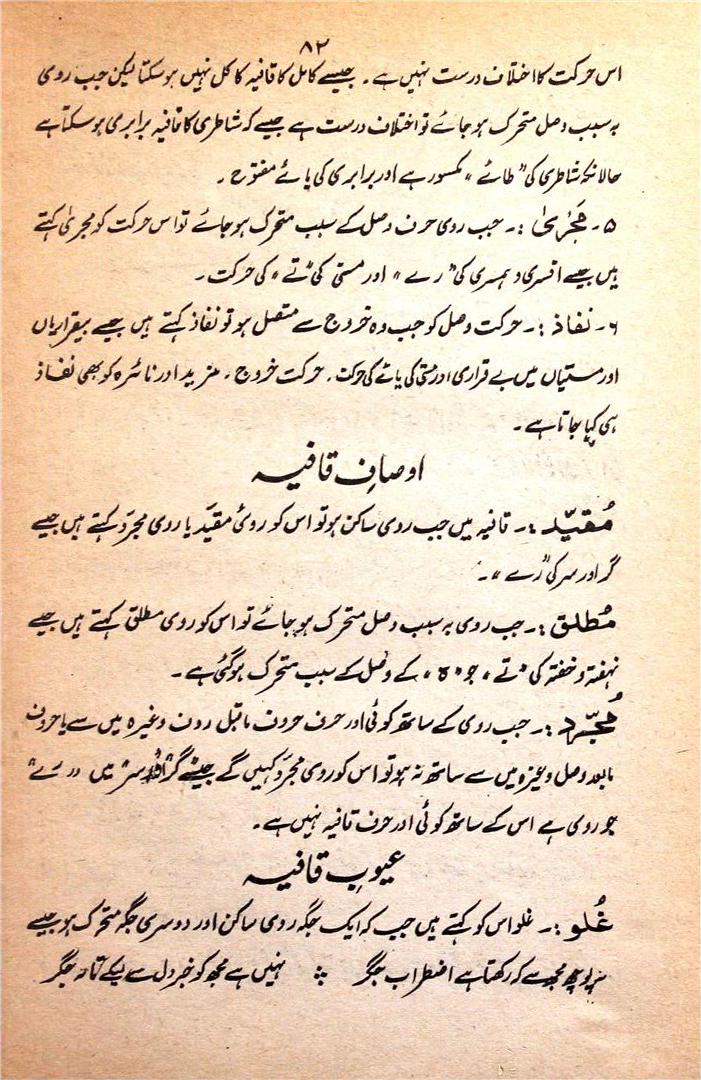 ۸۲
اس حرکت کا اختلاف درست نہیں ہے۔ جیسے کامل کا قافیہ کا کل نہیں ہو سکتا لیکن جب روی
بہ سبب وصل متحرک ہو جائے تو اختلاف درست ہے جیسے کہ شاطری کا قافیہ برابری ہو سکتا ہے
حالانکہ شاطری کی "طائے" مکسور ہے اور برابری کی بائے مفتوح۔
۵۔ مَجریٰ :۔ جب روی حرف وصل کے سبب متحرک ہو جائے تو اس حرکت کو مجریٰ کہتے
ہیں جیسے افسری و ہمسری کی "رے" اور مستی کی "تے" کی حرکت۔
۶۔ نفاذ :۔ حرکت وصل کو جب وہ خروج سے متصل ہو تو نفاذ کہتے ہیں جیسے بیقراریاں
اور مستیاں میں بے قراری اور مستی کی یائے کی حرکت۔ حرکت خروج۔ مزید اور نائرہ کو بھی نفاذ
ہی کہا جاتا ہے۔
اوصافِ قافیہ
مُقیّد :۔ قافیہ میں جب روی ساکن ہو تو اس کو رویٔ مقیّد یا روی مجرّد کہتے ہیں جیسے
گر اور سر کی "رے"۔
مُطلق :۔ جب روی بہ سبب وصل متحرک ہو جائے تو اس کو روی مطلق کہتے ہیں جیسے
نہفتہ و خفتہ کی "تے" جو "ہ" کے وصل کے سبب متحرک ہو گئی ہے۔
مُجرّد :۔ جب روی کے ساتھ کوئی اور حرف حروف ماقبل ردف وغیرہ میں سے یا حروف
مابعد وصل وغیرہ میں سے ساتھ نہ ہو تو اس کو روی مجرّد کہیں گے جیسے "گر" اور "سر" میں "رے"
جو روی ہے اس کے ساتھ کوئی اور حرف قافیہ نہیں ہے۔
عیوبِ قافیہ
غُلو :۔ غلو اس کو کہتے ہیں جب کہ ایک جگہ روی ساکن اور دوسری جگہ متحرک ہو جیسے
نہ پوچھ مجھ سے کہ رکھتا ہے اضطراب جگر نہیں ہے مجھ کو خبر دل سے لیکے تا بہ جگر